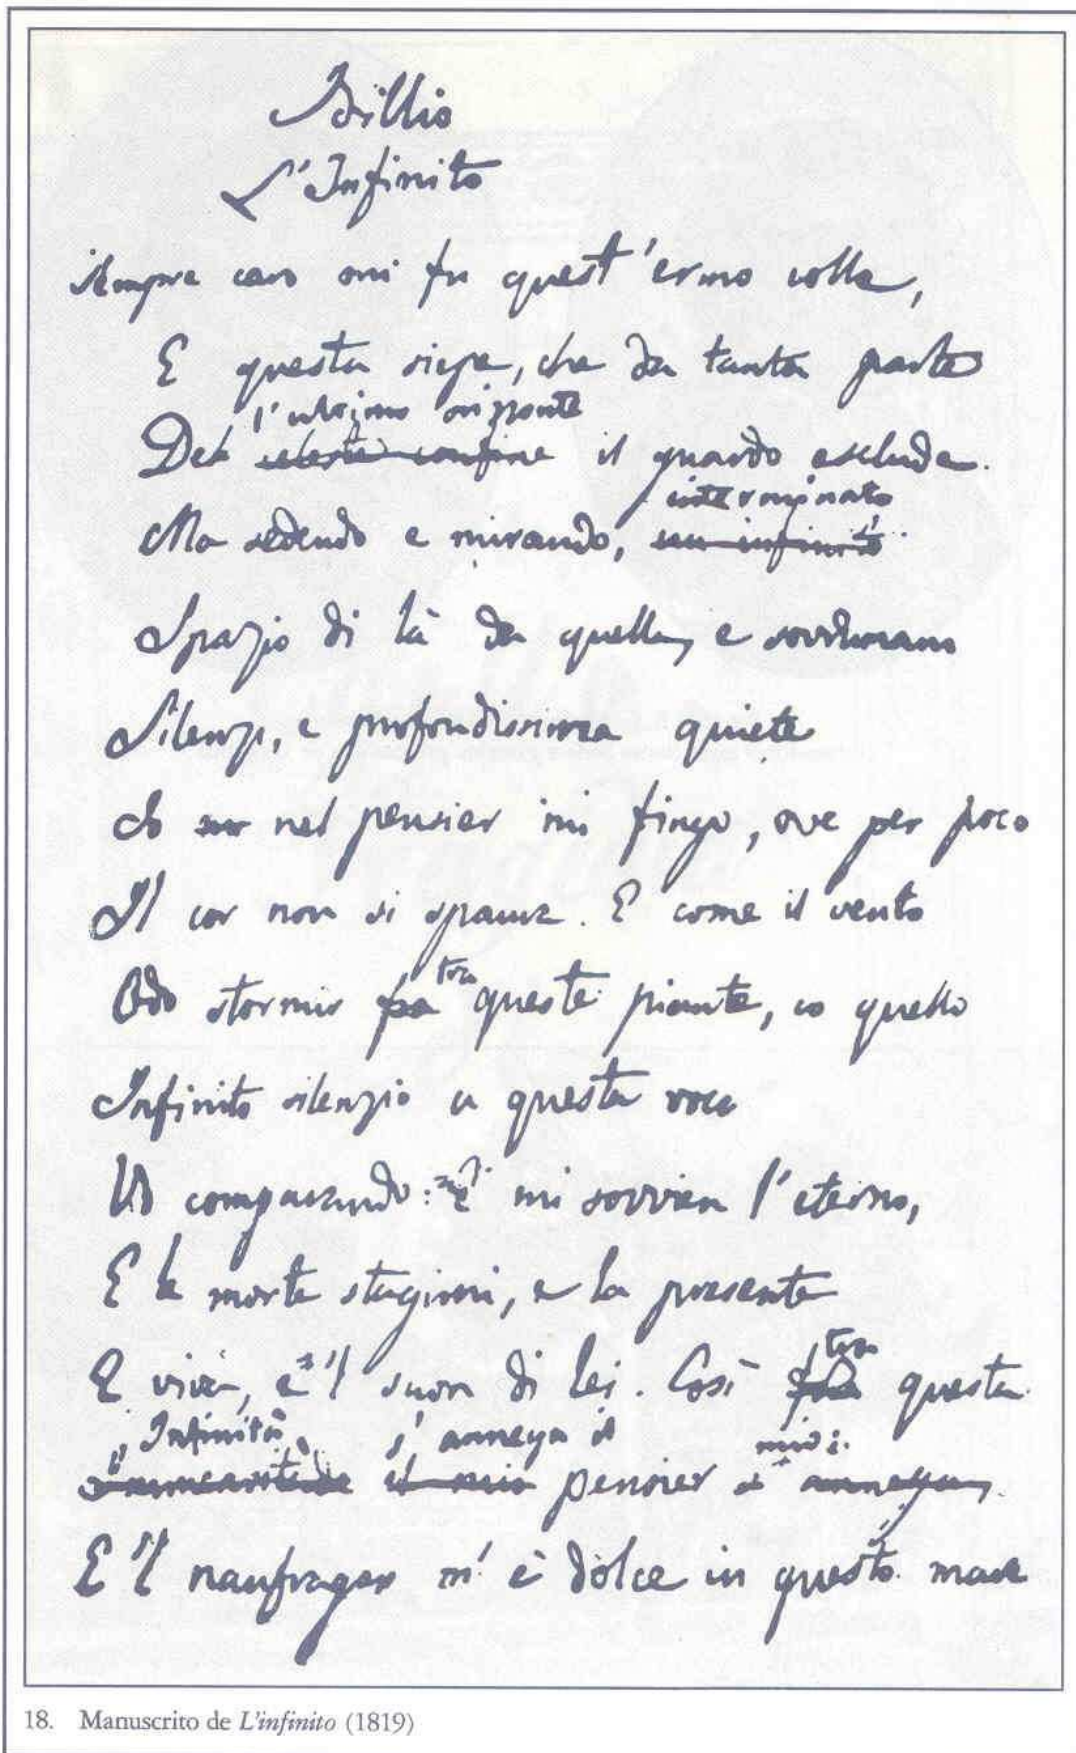 Idillio
L'Infinito
Sempre caro mi fu quest'ermo colle,
E questa siepe, che da tanta parte
l'ultimo orizzonte
Del celeste confine il guardo esclude.
interminato
Ma sedendo e mirando, un infinito
Spazio di là da quella, e sovrumani
Silenzi, e profondissima quiete
Io nel pensier mi fingo, ove per poco
Il cor non si spaura. E come il vento
tra
Odo stormir fra queste piante, io quello
Infinito silenzio a questa voce
Vo comparando: e mi sovvien l'eterno,
E le morte stagioni, e la presente
tra
E viva, e 'l suon di lei. Così fra questa
Infinità s'annega il mio:
Immensitade il mio pensier s'annega,
E 'l naufragar m'è dolce in questo mare
18. Manuscrito de L'infinito (1819)